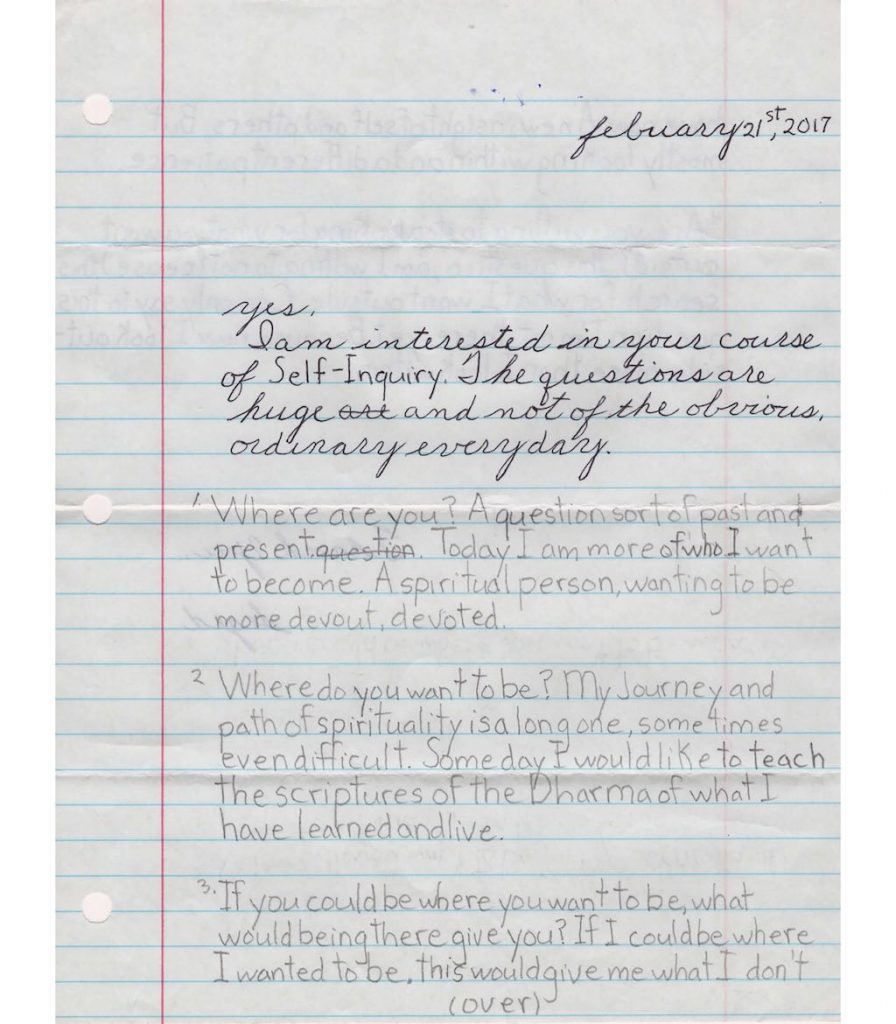 february 21st, 2017
yes,
I am interested in your course
of Self-Inquiry. The questions are
huge are and not of the obvious,
ordinary everyday.
1. Where are you? A question sort of past and
present question. Today I am more of who I want
to become. A spiritual person, wanting to be
more devout, devoted.
2 Where do you want to be? My Journey and
path of spirituality is a long one, sometimes
even difficult. Some day I would like to teach
the scriptures of the Dharma of what I
have learned and live.
3. If you could be where you want to be, what
would being there give you? If I could be where
I wanted to be, this would give me what I don't
(over)